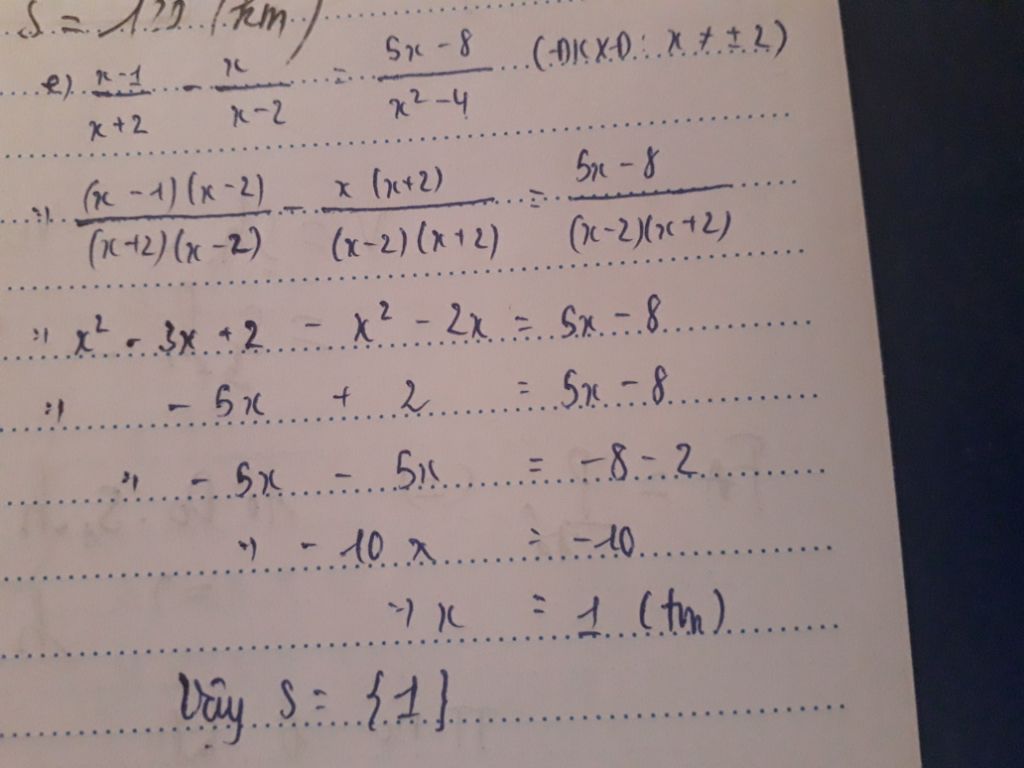 S = 120 (km)
e) x-1/x+2 - x/x-2 = 5x-8/x²-4 (ĐKXĐ: x ≠ ±2)
=> (x-1)(x-2)/(x+2)(x-2) - x(x+2)/(x-2)(x+2) = 5x-8/(x-2)(x+2)
=> x² - 3x + 2 - x² - 2x = 5x - 8
=> - 5x + 2 = 5x - 8
=> - 5x - 5x = -8 - 2
=> - 10x = -10
=> x = 1 (tm)
Vậy S = {1}